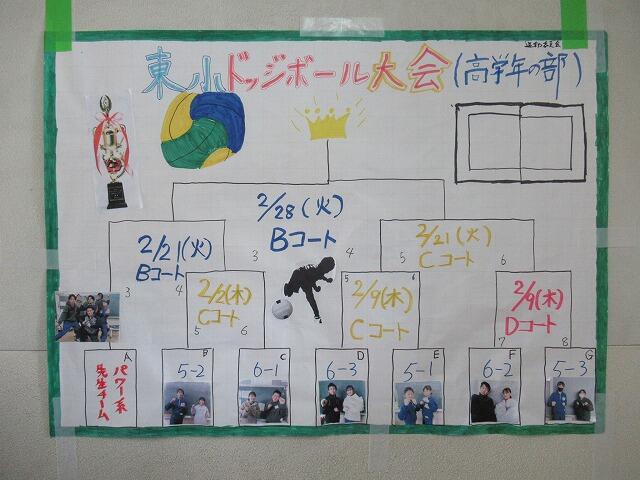 運動委員会
東小ドッジボール大会(高学年の部)
2/28(火)
Bコート
3
4
2/21(火)
Bコート
3
4
2/21(火)
Cコート
5
6
2/2(木)
Cコート
5
6
5
6
2/9(木)
Cコート
2/9(木)
Dコート
7
8
A
パワー系
先生チーム
B
5-2
C
6-1
D
6-3
E
5-1
F
6-2
G
5-3